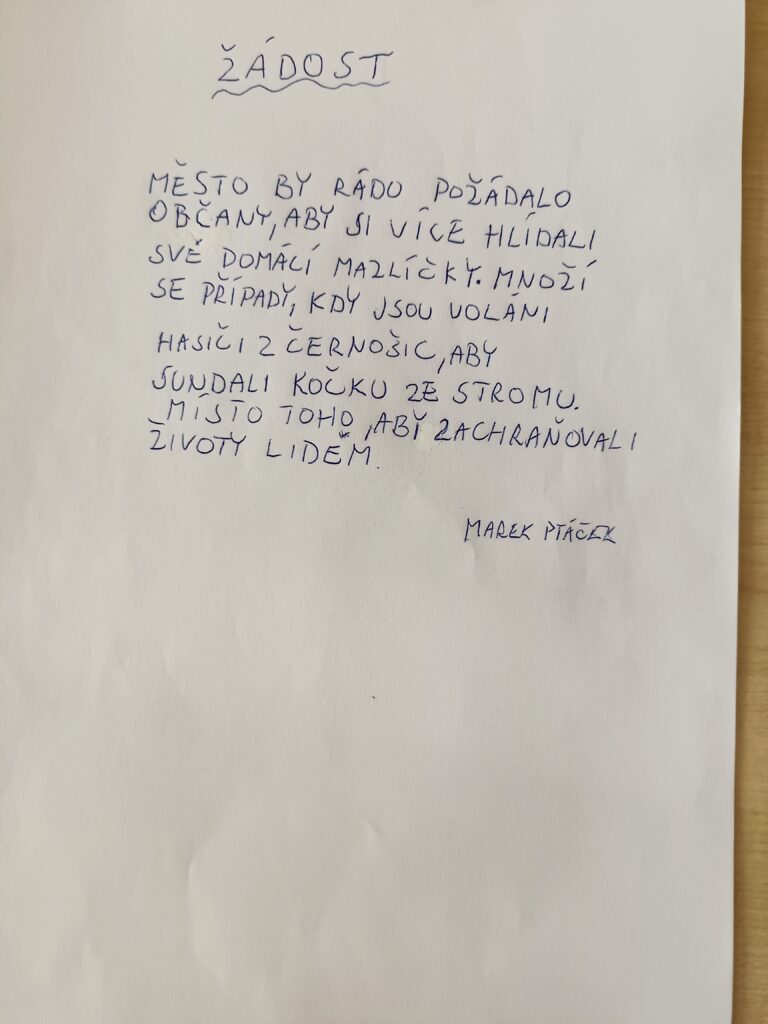 ŽÁDOST
MĚSTO BY RÁDO POŽÁDALO
OBČANY, ABY SI VÍCE HLÍDALI
SVÉ DOMÁCÍ MAZLÍČKY. MNOŽÍ
SE PŘÍPADY, KDY JSOU VOLÁNI
HASIČI Z ČERNOŠIC, ABY
SUNDALI KOČKU ZE STROMU.
MÍSTO TOHO, ABY ZACHRAŇOVALI
ŽIVOTY LIDEM.
MAREK PTÁČEK